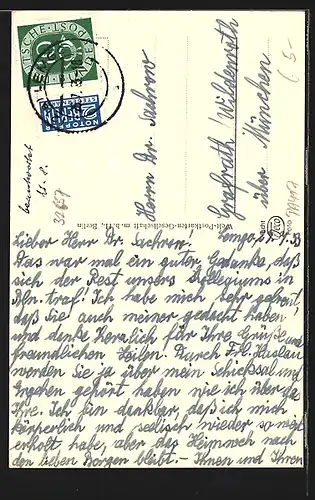 Lieber Herr Dr. Lemgo, 29.4.53
Das war mal ein guter Gedanke, daß
sich der Rest unsers Kollegiums in
Bln. traf! Ich habe mich sehr gefreut,
daß Sie auch meiner gedacht haben!
und danke herzlich für Ihre Grüße und
freundlichen Zeilen. Durch Frl.
werden Sie ja über mein Schicksal und
Ergehen gehört haben wie ich über das
Ihre. Ich bin dankbar, daß ich mich
körperlich und seelisch wieder so weit
erholt habe, aber das Heimweh nach
den lieben Bergen bleibt. – Ihnen und Ihren
Herrn Dr.
Grafrath/Wildenroth
über München
Welt-Postkarten-Gesellschaft m. b. H., Berlin
DEUTSCHE BUNDESPOST
NOTOPFER
2 BERLIN
STEUERMARKE
beantwortet
32657
(5-